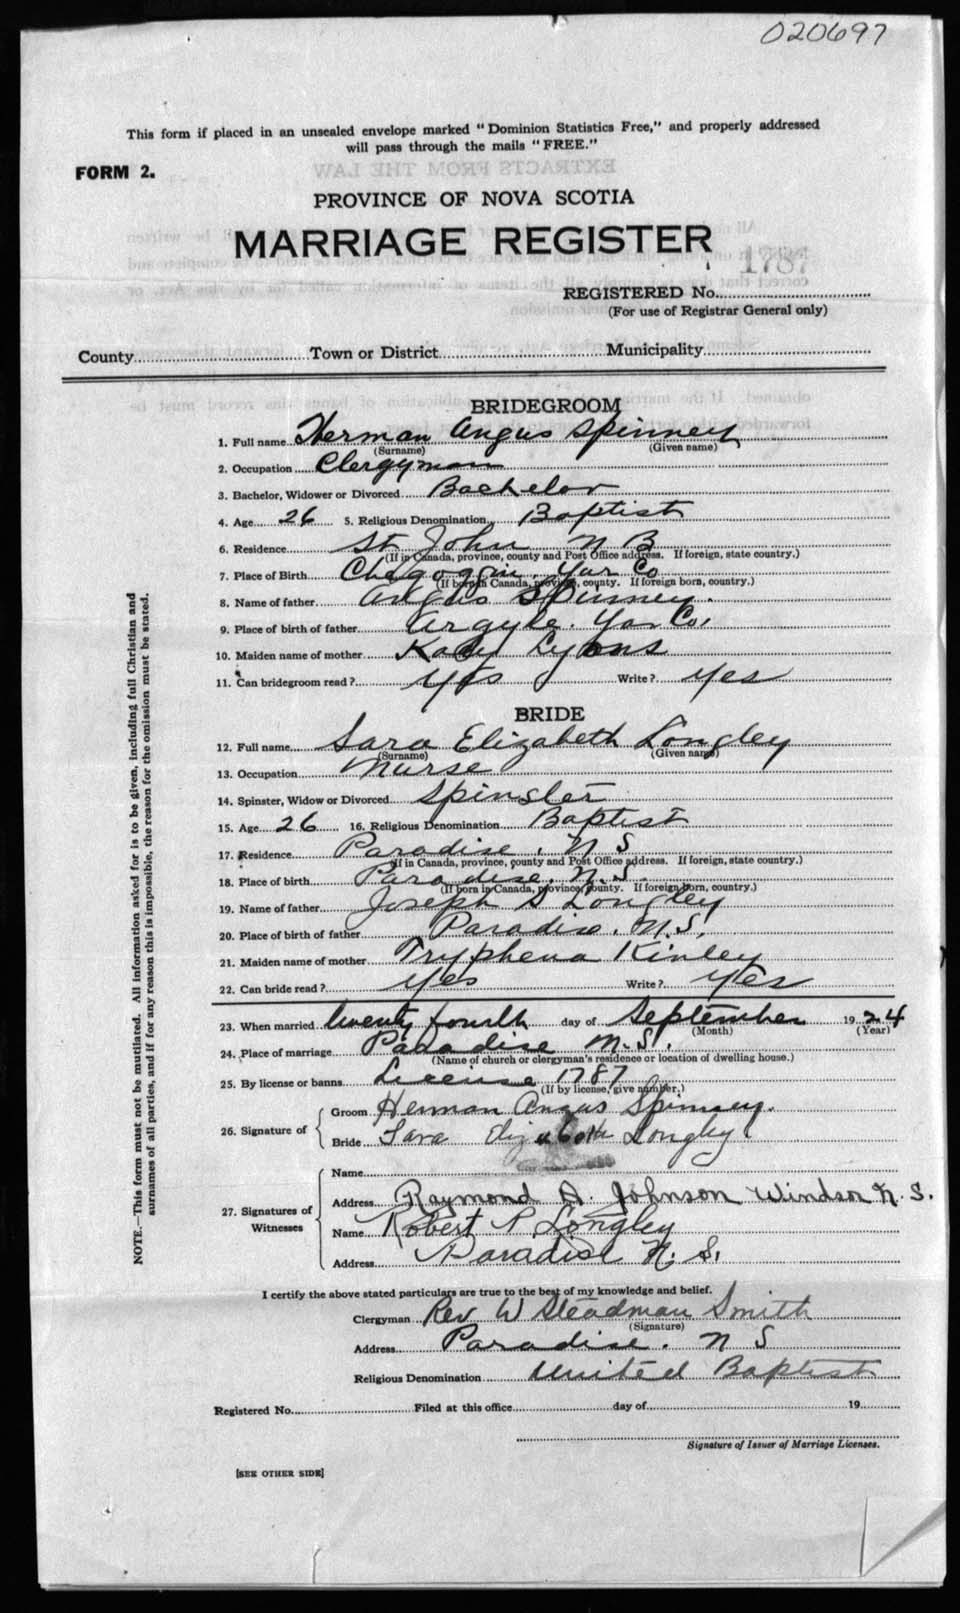 020697
This form if placed in an unsealed envelope marked "Dominion Statistics Free," and properly addressed
will pass through the mails "FREE."
FORM 2.
EXTRACTS FROM THE LAW
PROVINCE OF NOVA SCOTIA
MARRIAGE REGISTER
1787
REGISTERED No.
(For use of Registrar General only)
County Town or District Municipality
BRIDEGROOM
1. Full name Herman Angus Spinney
(Surname) (Given name)
2. Occupation Clergyman
3. Bachelor, Widower or Divorced Bachelor
4. Age 26 5. Religious Denomination Baptist
6. Residence St John N B
(If in Canada, province, county and Post Office address. If foreign, state country.)
7. Place of Birth Chegoggin. Yar Co
(If born in Canada, province, county. If foreign born, country.)
8. Name of father Angus Spinney.
9. Place of birth of father Argyle. Yar Co.
10. Maiden name of mother Lyons
11. Can bridegroom read? Yes Write? Yes
BRIDE
12. Full name Sara Elizabeth Longley
(Surname) (Given name)
13. Occupation Nurse
14. Spinster, Widow or Divorced Spinster
15. Age 26 16. Religious Denomination Baptist
17. Residence Paradise. N S
(If in Canada, province, county and Post Office address. If foreign, state country.)
18. Place of birth Paradise. N.S.
(If born in Canada, province, county. If foreign born, country.)
19. Name of father Joseph S Longley
20. Place of birth of father Paradise. N.S.
21. Maiden name of mother Tryphena Kinley
22. Can bride read? Yes Write? Yes
23. When married twenty fourth day of September 1924
(Month) (Year)
24. Place of marriage Paradise N.S.
(Name of church or clergyman's residence or location of dwelling house.)
25. By license or banns License 1787
(If by license, give number.)
26. Signature of Groom Herman Angus Spinney.
Bride Sara Elizabeth Longley
27. Signatures of Witnesses Name
Address Raymond A. Johnson Windsor N.S.
Name Robert P. Longley
Address Paradise N.S.
I certify the above stated particulars are true to the best of my knowledge and belief.
Clergyman Rev W Steadman Smith
(Signature)
Address Paradise. N S
Religious Denomination United Baptist
Registered No. Filed at this office day of 19
Signature of Issuer of Marriage Licenses.
[SEE OTHER SIDE]
NOTE.—This form must not be mutilated. All information asked for is to be given, including full Christian and
surnames of all parties, and if for any reason this is impossible, the reason for the omission must be stated.